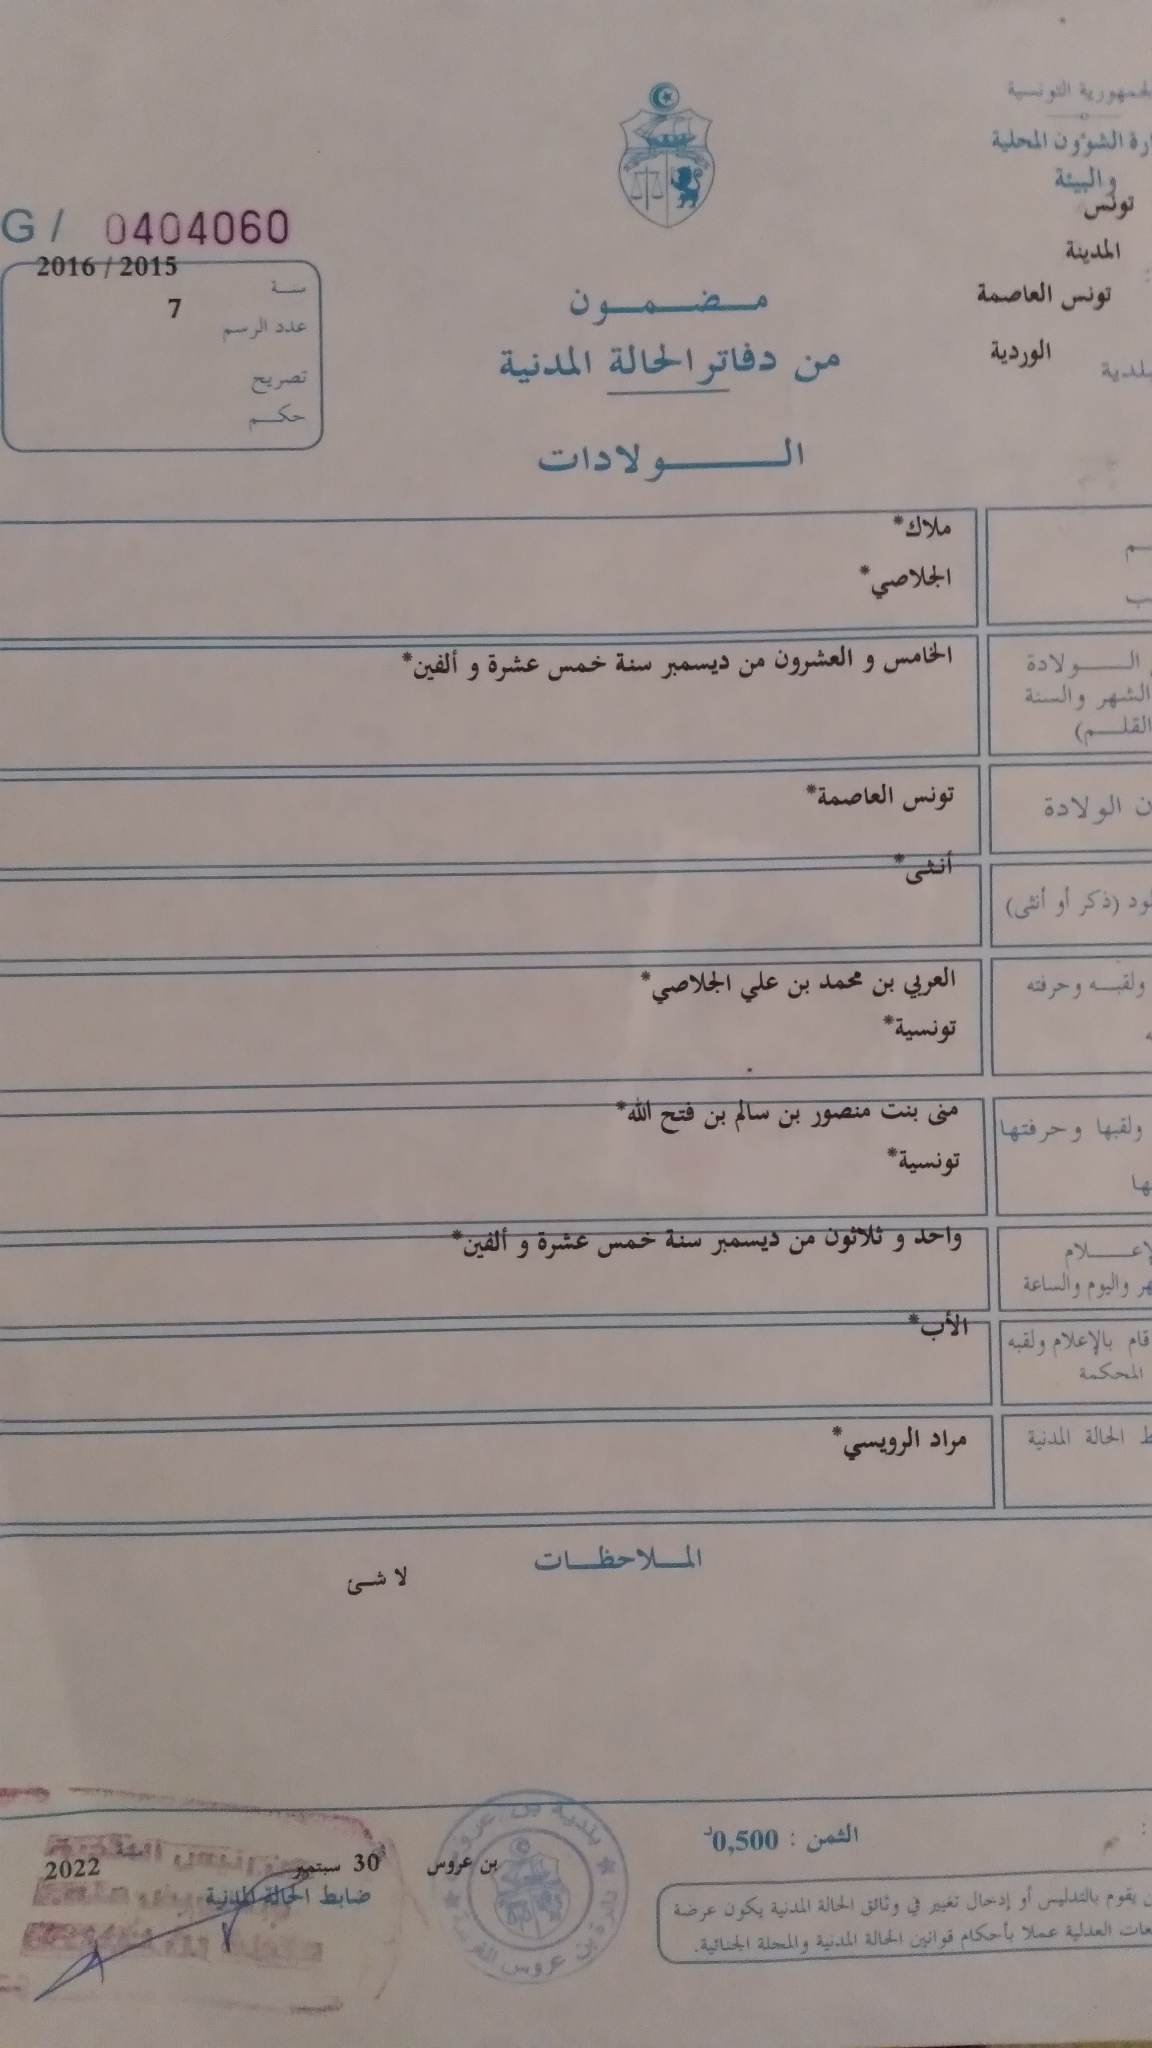 الجمهورية التونسية
الشؤون المحلية
والبيئة
تونس
المدينة
تونس العاصمة
بلدية الوردية
G / 0404060
سنة 2015 / 2016
عدد الرسم 7
تصريح
حكم
مضمون
من دفاتر الحالة المدنية
الولادات
ملاك*
الجلاصي*
الولادة الخامس و العشرون من ديسمبر سنة خمس عشرة و ألفين*
الشهر والسنة
القلم)
الولادة تونس العاصمة*
(ذكر أو أنثى) أنثى*
ولقبه وحرفته العربي بن محمد بن علي الجلاصي*
تونسية*
ولقبها وحرفتها منى بنت منصور بن سالم بن فتح الله*
تونسية*
واحد و ثلاثون من ديسمبر سنة خمس عشرة و ألفين*
واليوم والساعة
قام بالإعلام ولقبه الأب*
المحكمة
الحالة المدنية مراد الرويسي*
الملاحظات
لا شئ
الثمن : 0,500د
بن عروس 30 سبتمبر 2022
ضابط الحالة المدنية
يقوم بالتدليس أو إدخال تغيير في وثائق الحالة المدنية يكون عرضة
العدلية عملا بأحكام قوانين الحالة المدنية والمجلة الجنائية.
بلدية بن عروس